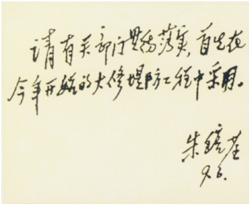 请有关部门贯彻落实，首先在
今年开始的大修堤防工程中采用。
朱镕基
9.6.